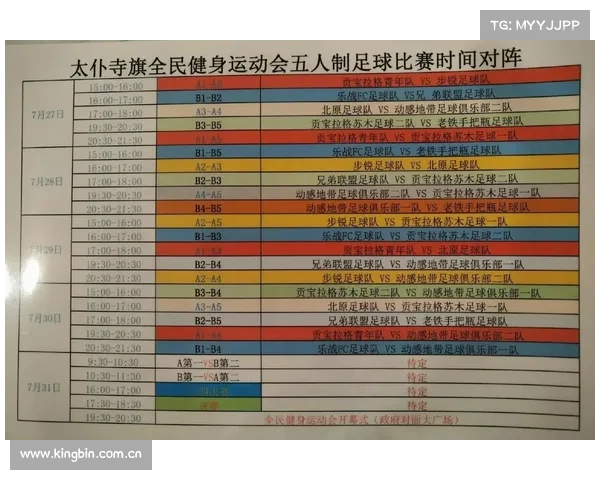 TG: MYYJJPP
太仆寺旗全民健身运动会五人制足球比赛时间对阵
7月27日
15:00-16:00 A1-A2 贡宝拉格青年队 VS 步锐足球队
16:00-17:00 B1-B2 乐战FC足球队 VS兄 弟联盟足球队
17:00-18:00 A3-A4 北原足球队 VS 动感地带足球俱乐部二队
19:30-20:30 B3-B5 贡宝拉格苏木足球二队 VS 老铁手把瓶足球队
20:30-21:30 A1-A5 贡宝拉格青年队 VS 贡宝拉格苏木足球一队
7月28日
15:00-16:00 B1-B5 乐战FC足球队 VS老铁手把瓶足球队
16:00-17:00 A2-A3 步锐足球队 VS 北原足球队
17:00-18:00 B2-B3 兄弟联盟足球队 VS 贡宝拉格苏木足球二队
19:30-20:30 A4-A5 动感地带足球俱乐部二队 VS 贡宝拉格苏木足球一队
20:30-21:30 B4-B5 动感地带足球俱乐部一队 VS 老铁手把瓶足球队
7月29日
15:00-16:00 A2-A5 步锐足球队 VS 贡宝拉格苏木足球一队
16:00-17:00 B1-B3 乐战FC足球队 VS 贡宝拉格苏木足球二队
17:00-18:00 A1-A3 贡宝拉格青年队 VS 北原足球队
19:30-20:30 B2-B4 兄弟联盟足球队 VS 动感地带足球俱乐部一队
20:30-21:30 A2-A4 步锐足球队 VS 动感地带足球俱乐部二队
7月30日
15:00-16:00 B3-B4 贡宝拉格苏木足球二队 VS 动感地带足球俱乐部一队
16:00-17:00 A3-A5 北原足球队 VS 贡宝拉格苏木足球一队
17:00-18:00 B2-B5 兄弟联盟足球队 VS 老铁手把瓶足球队
19:30-20:30 A1-A4 贡宝拉格青年队 VS 动感地带足球俱乐部二队
20:30-21:30 B1-B4 乐战FC足球队 VS 动感地带足球俱乐部一队
7月31日
9:30-10:30 A第一VSB第二 待定
10:30-11:30 B第一VSA第二 待定
16:00-17:00 待定
17:30-18:30 决赛 待定
19:30-20:30 全民健身运动会开幕式（政府对面大广场）
www.kingbin.com.cn